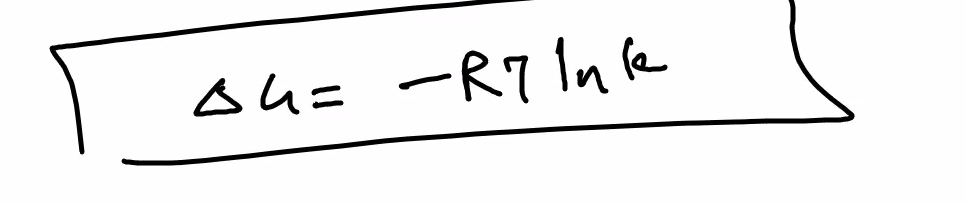 ΔG = -RT ln k